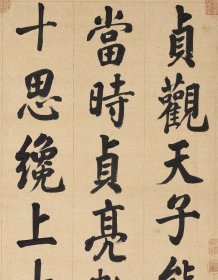 貞觀天子
當時貞亮
十思纔上